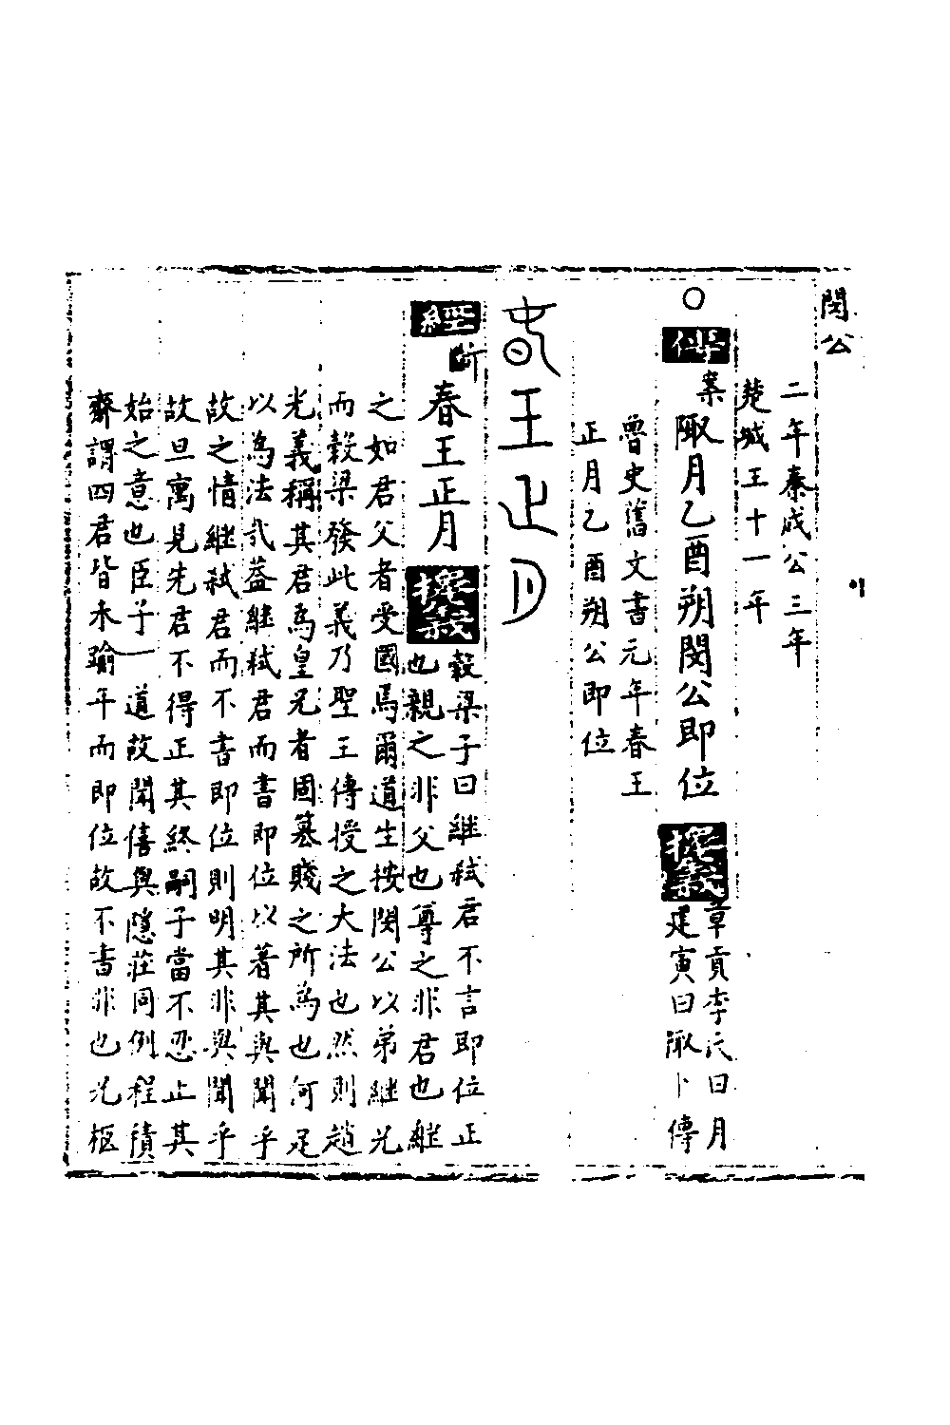 閔公
二年秦成公三年
楚
王十一年
○
傳
案
陬月乙酉朔閔公即位
揆義
章貢李氏曰月
建寅曰陬卜傳
魯史舊文書元年春王
正月乙酉朔公即位
春王正月
經
斷
春王正月
揆義
穀梁子曰継弒君不言即位正
也親之非父也尊之非君也継
之如君父者受國焉爾道生按閔公以弟継兄
而穀梁發此義乃聖王傳授之大法也然則趙
光義稱其君為皇兄者固篡賤之所為也何足
以為法弐葢継弒君而書即位以著其與聞乎
故之情継弒君而不書即位則明其非與聞乎
故旦寓見先君不得正其終嗣子當不忍止其
始之意也臣子一道故閔僖與隱莊同例程積
齋謂四君皆未踰年而即位故不書非也兄柩